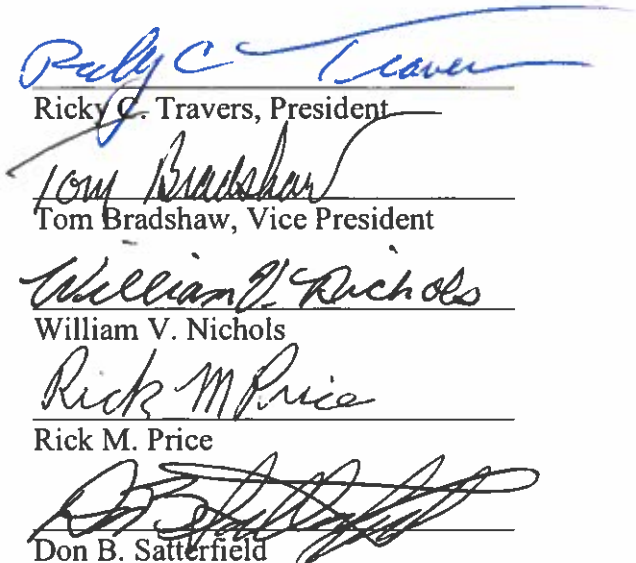 Ricky C Travers
Ricky C. Travers, President
Tom Bradshaw
Tom Bradshaw, Vice President
William V. Nichols
William V. Nichols
Rick M Price
Rick M. Price
Don B. Satterfield
Don B. Satterfield